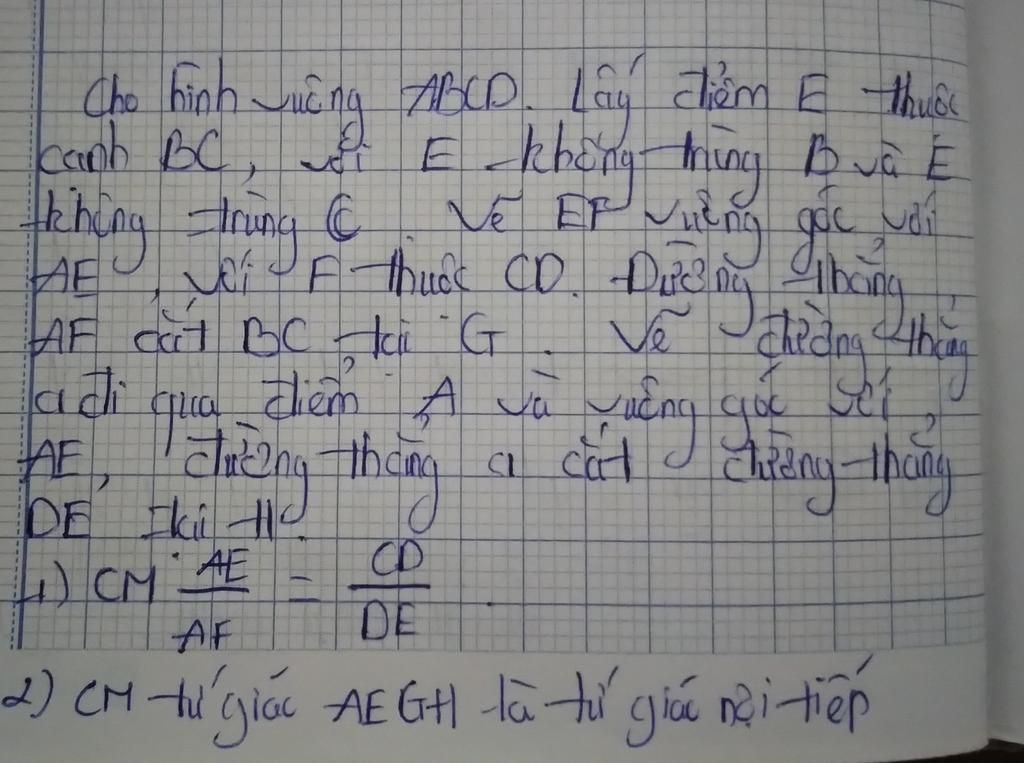 Cho hình vuông ABCD. Lấy điểm E thuộc
cạnh BC, với E không trùng B và E
không trùng C. Vẽ EF vuông góc với
AE, với F thuộc CD. Đường thẳng
AF cắt BC tại G. Vẽ đường thẳng
a đi qua điểm A và vuông góc với
AE, đường thẳng a cắt đường thẳng
DE tại H.
1) CM AE/AF = CD/DE.
2) CM tứ giác AEGH là tứ giác nội tiếp